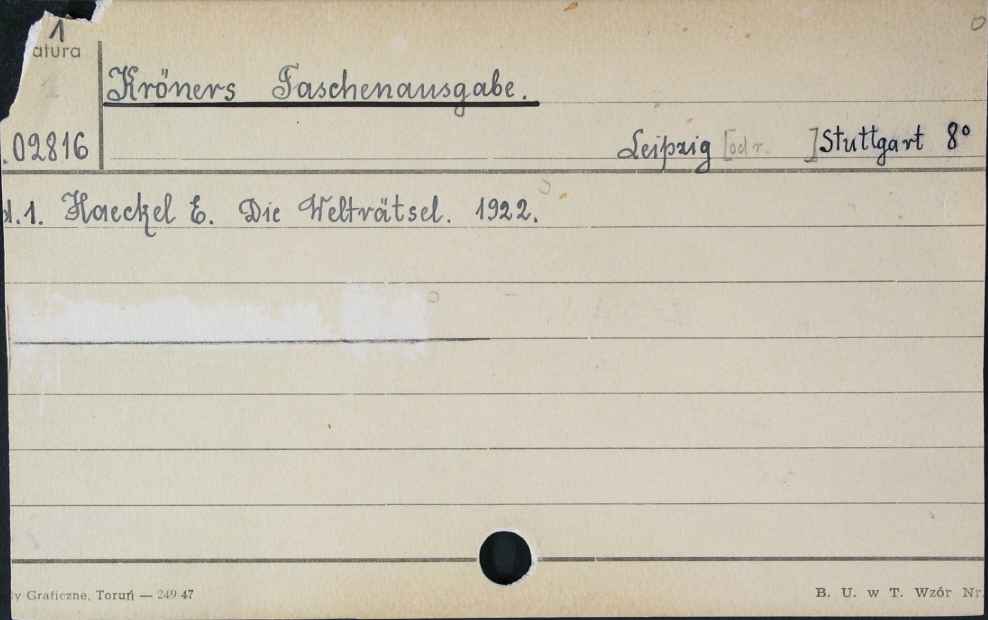 1
atura
Kröners Taschenausgabe.
.02816
Leipzig [od r. ] Stuttgart 8°
d.1. Haeckel E. Die Welträtsel. 1922.
y Graficzne, Toruń — 249-47
B. U. w T. Wzór Nr.